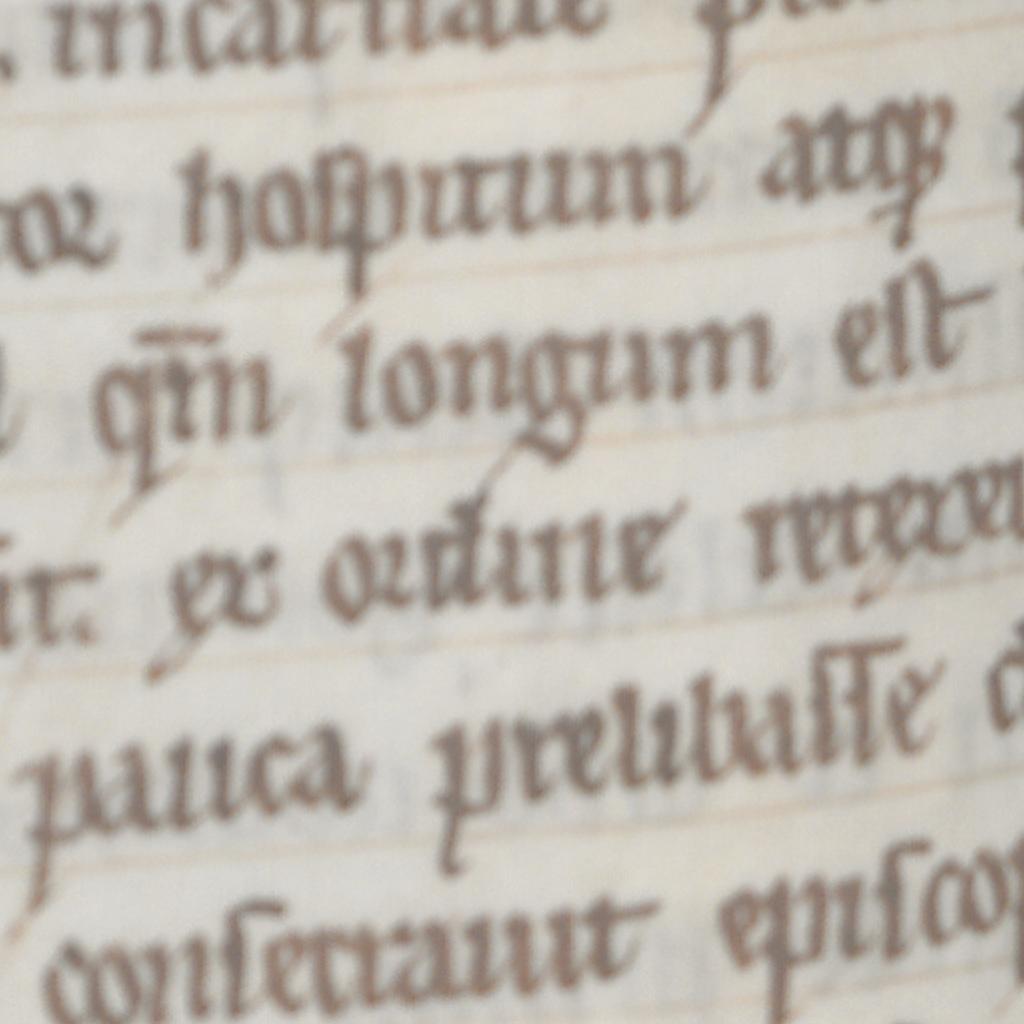 incarnate
hospitum atq;
qm̄ longum est
ex ordine
pauca prelibasse
consecrauit episcop